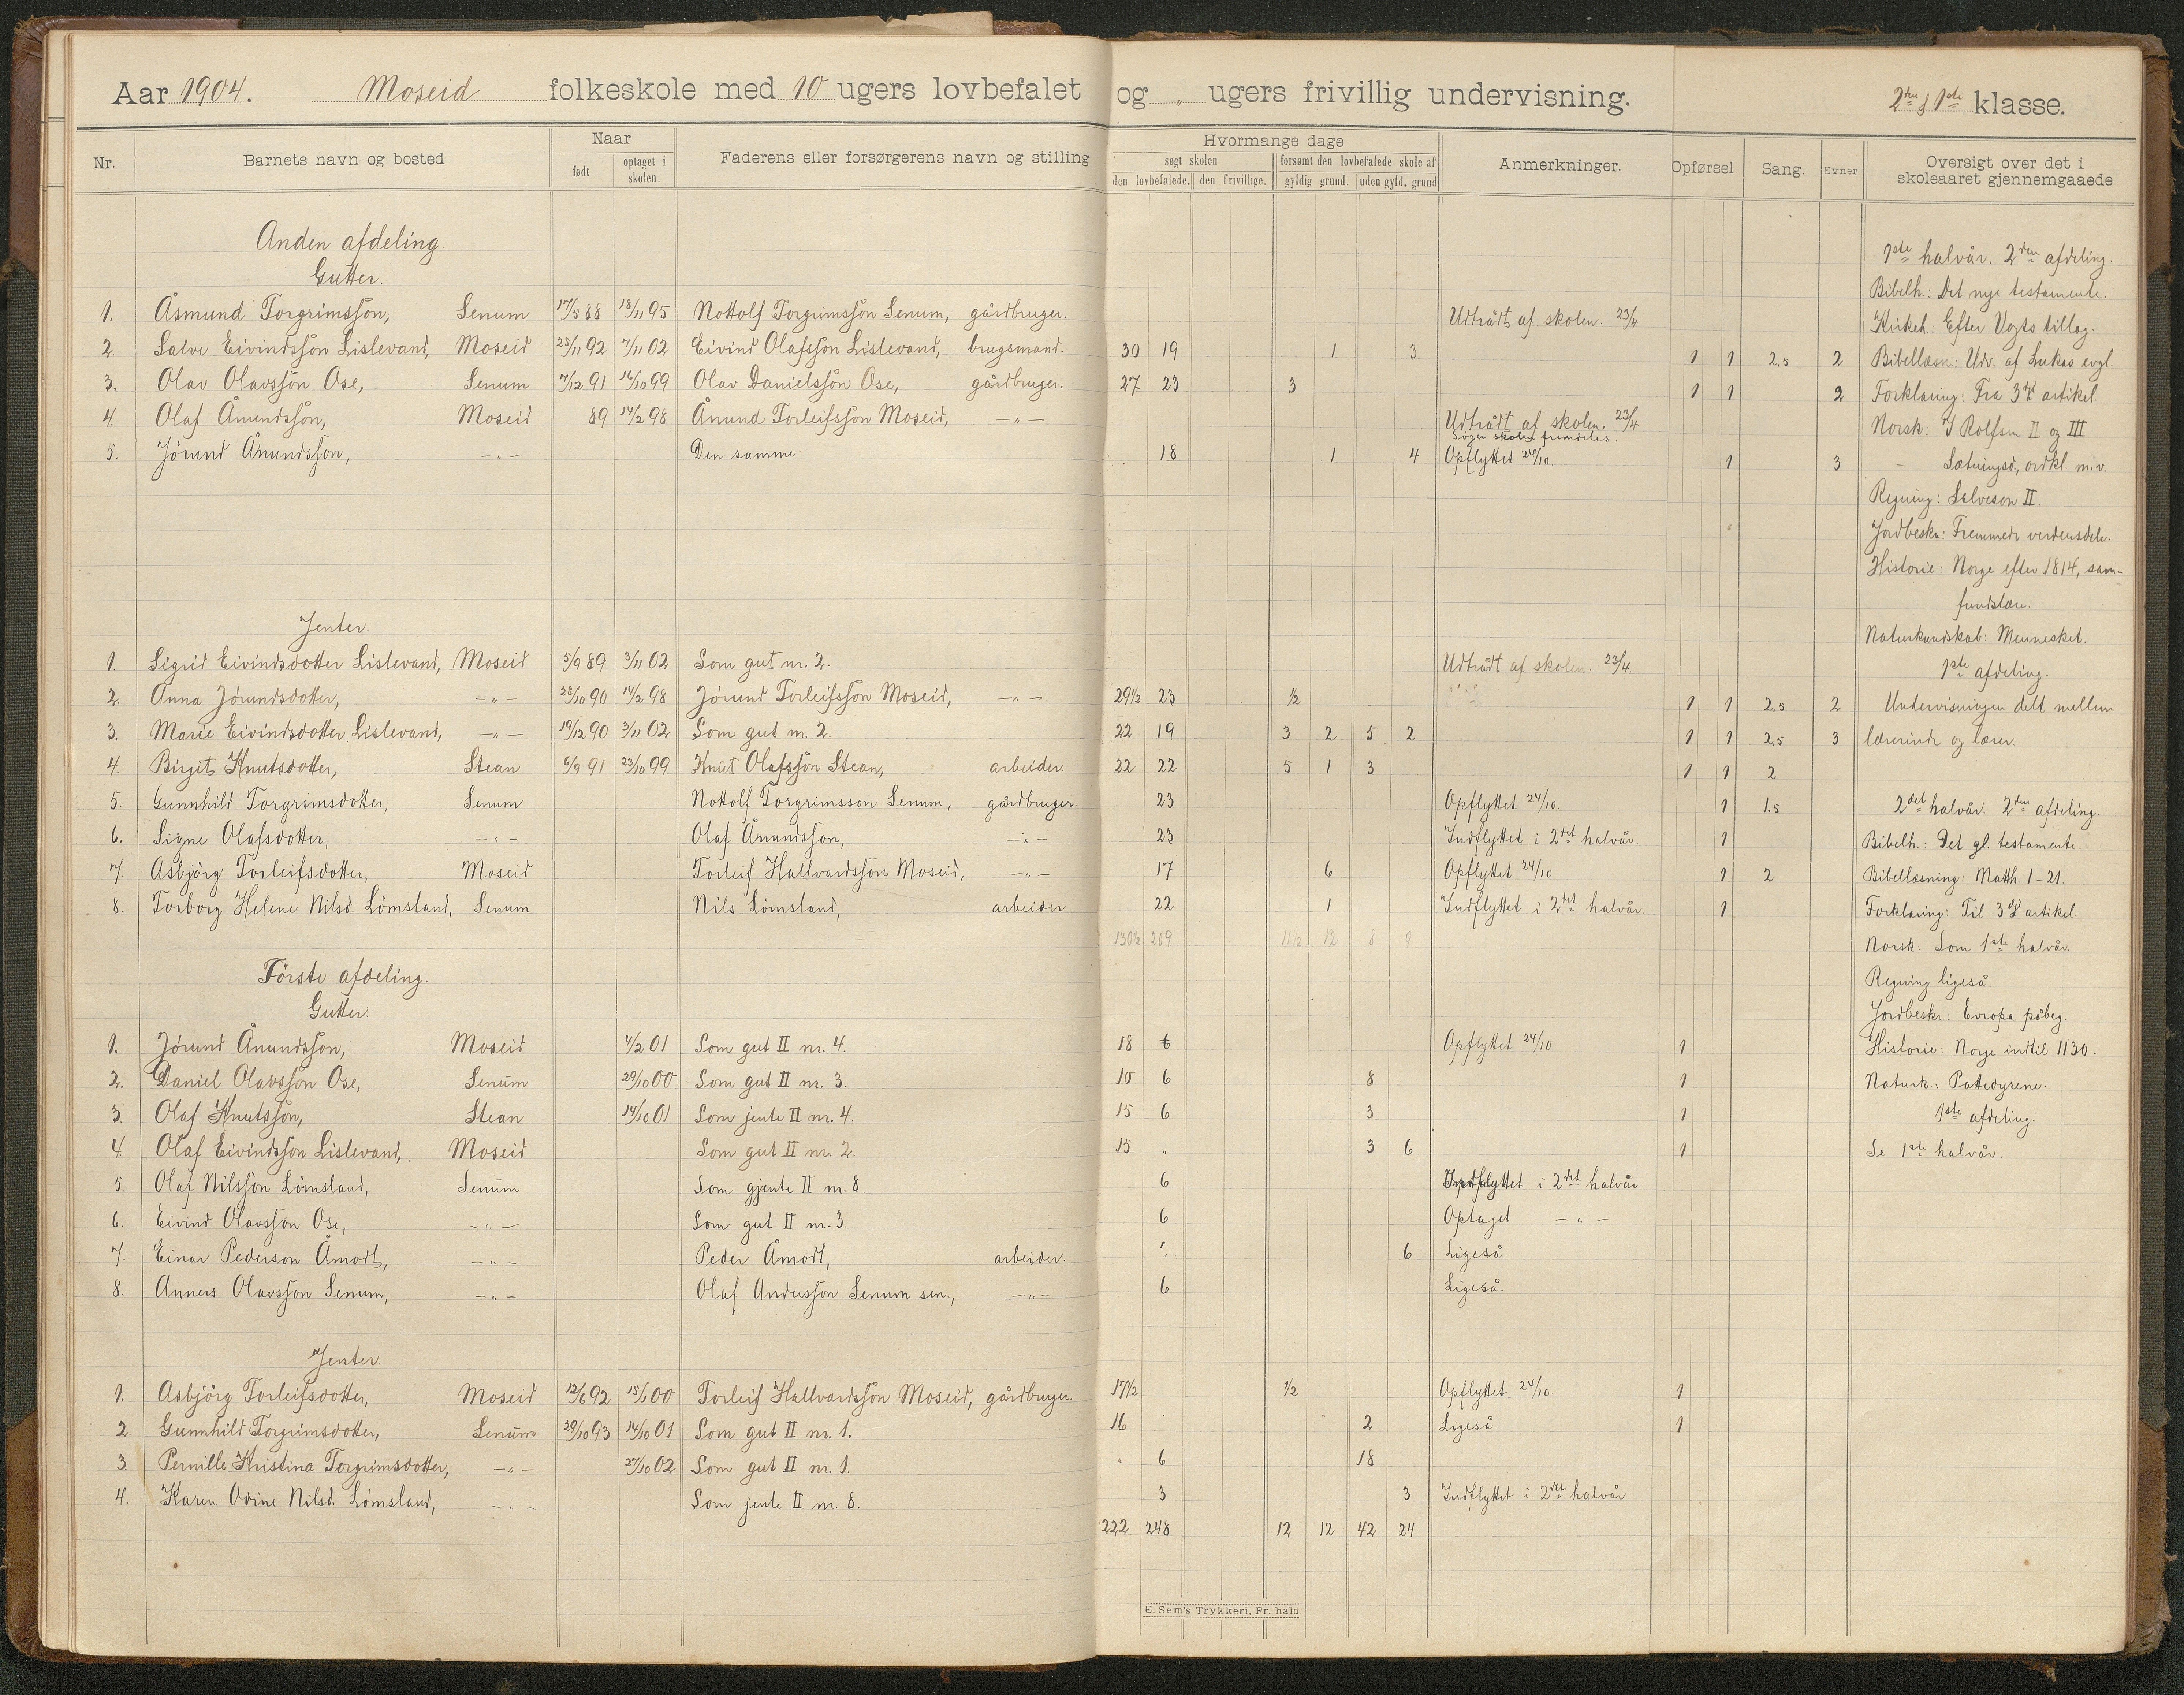 Aar 1904. Moseid folkeskole med 10 ugers lovbefalet og „ ugers frivillig undervisning. 2den & 1ste klasse.
Nr. Barnets navn og bosted Naar født optaget i skolen. Faderens eller forsørgerens navn og stilling Hvormange dage søgt skolen den lovbefalede. den frivillige. forsømt den lovbefalede skole af gyldig grund. uden gyld. grund Anmerkninger. Opførsel. Sang. Evner Oversigt over det i skoleaaret gjennemgaaede
Anden afdeling.
Gutter.
1. Åsmund Torgrimssøn, Senum 17/5 88 18/11 95 Nottolf Torgrimssøn Senum, gårdbruger. Udtrådt af skolen. 23/4
2. Salve Eivindssøn Lislevand, Moseid 23/11 92 7/11 02 Eivind Olafssøn Lislevand, brugsmand. 30 19 1 3 1 1 2,5 2
3. Olav Olavssøn Ose, Senum 7/12 91 16/10 99 Olav Danielssøn Ose, gårdbruger. 27 23 3 1 1 2
4. Olaf Ånundssøn, Moseid 89 14/2 98 Ånund Torleifssøn Moseid, —„— Udtrådt af skolen. 23/4
Søger skolen fremdeles.
5. Jørund Ånundssøn, —„— Den samme 18 1 4 Opflyttet 24/10. 1 3
Jenter.
1. Sigrid Eivindsdotter Lislevand, Moseid 5/9 89 3/11 02 Som gut nr. 2. Udtrådt af skolen. 23/4.
2. Anna Jørundsdotter, —„— 28/10 90 14/2 98 Jørund Torleifssøn Moseid, —„— 29½ 23 ½ 1 1 2,5 2
3. Marie Eivindsdotter Lislevand, —„— 19/12 90 3/11 02 Som gut nr. 2. 22 19 3 2 5 2 1 1 2,5 3
4. Birgit Knutsdotter, Stean 6/9 91 23/10 99 Knut Olafssøn Stean, arbeider. 22 22 5 1 3 1 1 2
5. Gunnhild Torgrimsdotter, Senum Nottolf Torgrimsson Senum, gårdbruger 23 Opflyttet 24/10 1 1,5
6. Signe Olafsdotter, —„— Olaf Ånundssøn, —„— 23 Indflyttet i 2det halvår. 1
7. Asbjörg Torleifsdotter, Moseid Torleif Hallvardssøn Moseid, —„— 17 6 Opflyttet 24/10 1 2
8. Torborg Helene Nilsd. Lömsland, Senum Nils Lömsland, arbeider 22 1 Indflyttet i 2det halvår. 1
130½ 209 11½ 12 8 9
Förste afdeling.
Gutter.
1. Jørund Ånundssøn, Moseid 4/2 01 Som gut II nr. 4. 18 6 Opflyttet 24/10 1
2. Daniel Olavssøn Ose, Senum 29/10 00 Som gut II nr. 3. 10 6 8 1
3. Olaf Knutssøn, Stean 14/10 01 Som jente II nr. 4. 15 6 3 1
4. Olaf Eivindssøn Lislevand, Moseid Som gut II nr. 2. 15 „ 3 6 1
5. Olaf Nilssøn Lömsland, Senum Som gjente II nr. 8 6 Indflyttet i 2det halvår
6. Eivind Olavssøn Ose, —„— Som gut II nr. 3. 6 Optaget —„—
7. Einar Pederson Åmodt, —„— Peder Åmodt, arbeider. „ 6 Ligeså
8. Anners Olavssøn Senum, —„— Olaf Anderssøn Senum sen., —„— 6 Ligeså.
Jenter.
1. Asbjörg Torleifsdotter, Moseid 12/6 92 15/1 00 Torleif Hallvardssøn Moseid, gårdbruger. 17½ ½ Opflyttet 24/10 1
2. Gunnhild Torgrimsdotter, Senum 29/10 93 14/10 01 Som gut II nr. 1. 16 2 Ligeså. 1
3. Pernille Kristina Torgrimsdotter, —„— 27/10 02 Som gut II nr. 1. „ 6 18
4. Karen Odine Nilsd. Lömsland, —„— Som jente II nr. 8. 3 3 Indflyttet i 2det halvår.
222 248 12 12 42 24
E. Sem's Trykkeri, Fr. hald
1ste halvår. 2den afdeling.
Bibelh.: Det nye testamente.
Kirkeh.: Efter Vogts tillæg.
Bibellæsn.: Udv. af Lukas evgl.
Forklaring: Fra 3die artikel.
Norsk: I Rolfsen II og III
— Sætningsd., ordkl. m.v.
Regning: Salveson II.
Jordbeskr.: Fremmede verdensdele.
Historie: Norge efter 1814, sam-
fundslære.
Naturkundskab: Mennesket.
1ste afdeling.
Undervisningen delt mellem
lærerinde og lærer.
2det halvår. 2den afdeling.
Bibelh.: Det gl. testamente.
Bibellæsning: Matth. 1-21.
Forklaring: Til 3die artikel.
Norsk: Som 1ste halvår.
Regning ligeså.
Jordbeskr.: Evropa påbeg.
Historie: Norge indtil 1130.
Naturk.: Pattedyrene.
1ste afdeling.
Se 1ste halvår.